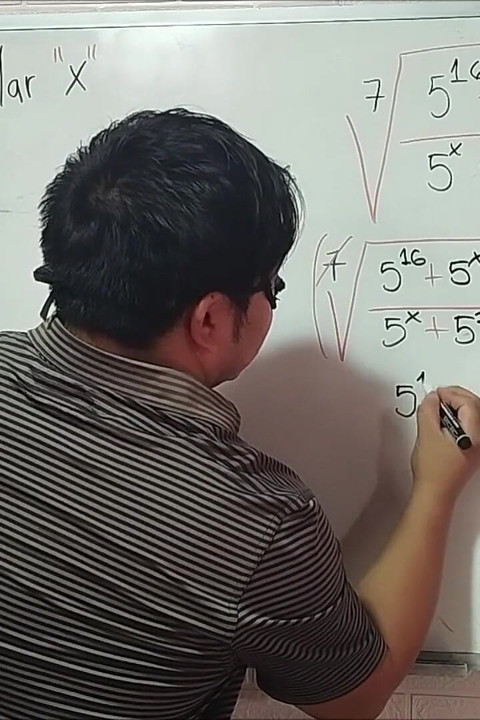 lar "x"
7√ 5^16
5^x
(7√ 5^16 + 5^x
5^x + 5
5^1